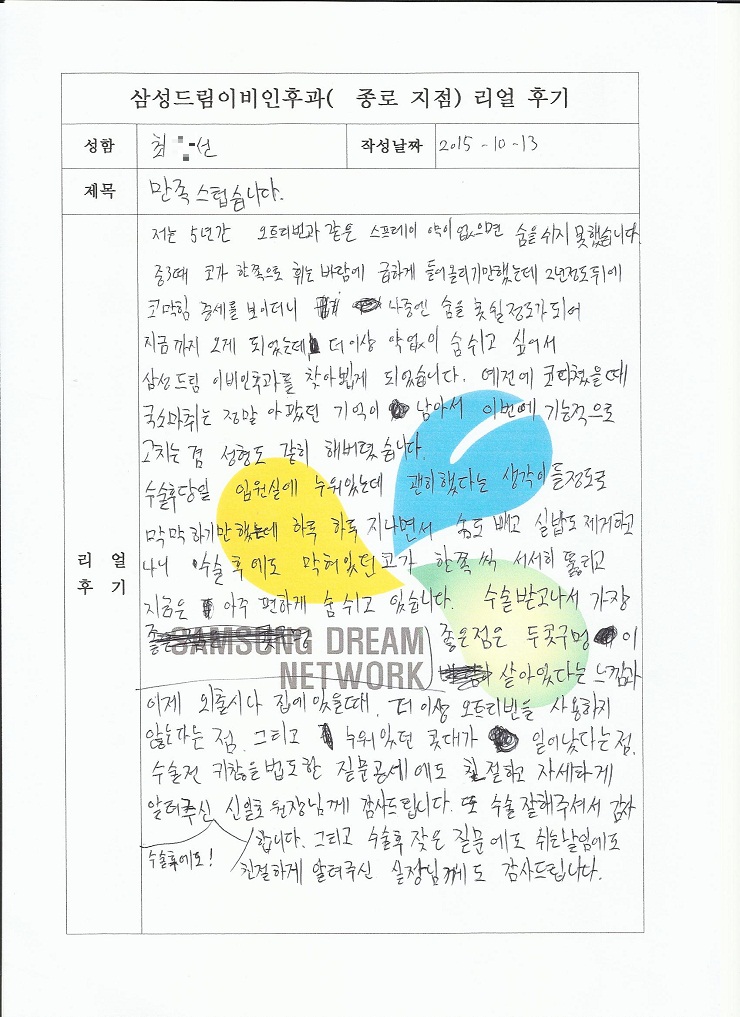 삼성드림이비인후과( 종로 지점) 리얼 후기
성함 최 선 작성날짜 2015-10-13
제목 만족스럽습니다.
저는 5년간 오트리빈과 같은 스프레이 약이 없으면 숨을 쉬지 못했습니다.
중3때 코가 한쪽으로 휘는 바람에 급하게 들어올리기만했는데 2년정도뒤에
코막힘 증세를 보이더니 나중엔 숨을 못쉴정도가되어
지금까지 오게 되었는데 더이상 약없이 숨쉬고 싶어서
삼성드림 이비인후과를 찾아뵙게 되었습니다. 예전에 코다쳤을때
국소마취는 정말 아팠던 기억이 남아서 이번에 기능적으로
고치는 겸 성형도 같이 해버렸습니다.
수술후당일 입원실에 누워있는데 괜히했다는 생각이들정도로
막막하기만했는데 하루 하루 지나면서 솜도 빼고 실밥도제거하고
나니 수술후에도 막혀있던코가 한쪽씩 서서히 뚫리고
지금은 아주 편하게 숨쉬고 있습니다. 수술받고나서 가장
좋은점은 두콧구멍이
살아있다는느낌과
SAMSUNG DREAM
NETWORK
이제 외출시나 집에있을때 더이상 오트리빈을 사용하지
않는다는 점. 그리고 누워있던 콧대가 일어났다는점.
수술전 귀찮을법도한 질문공세에도 친절하고 자세하게
알려주신 신일호원장님께 감사드립니다. 또 수술잘해주셔서 감사
합니다. 그리고 수술후 잦은 질문에도 쉬는날임에도
수술후에도!
친절하게 알려주신 실장님께도 감사드립니다.
리 얼
후 기